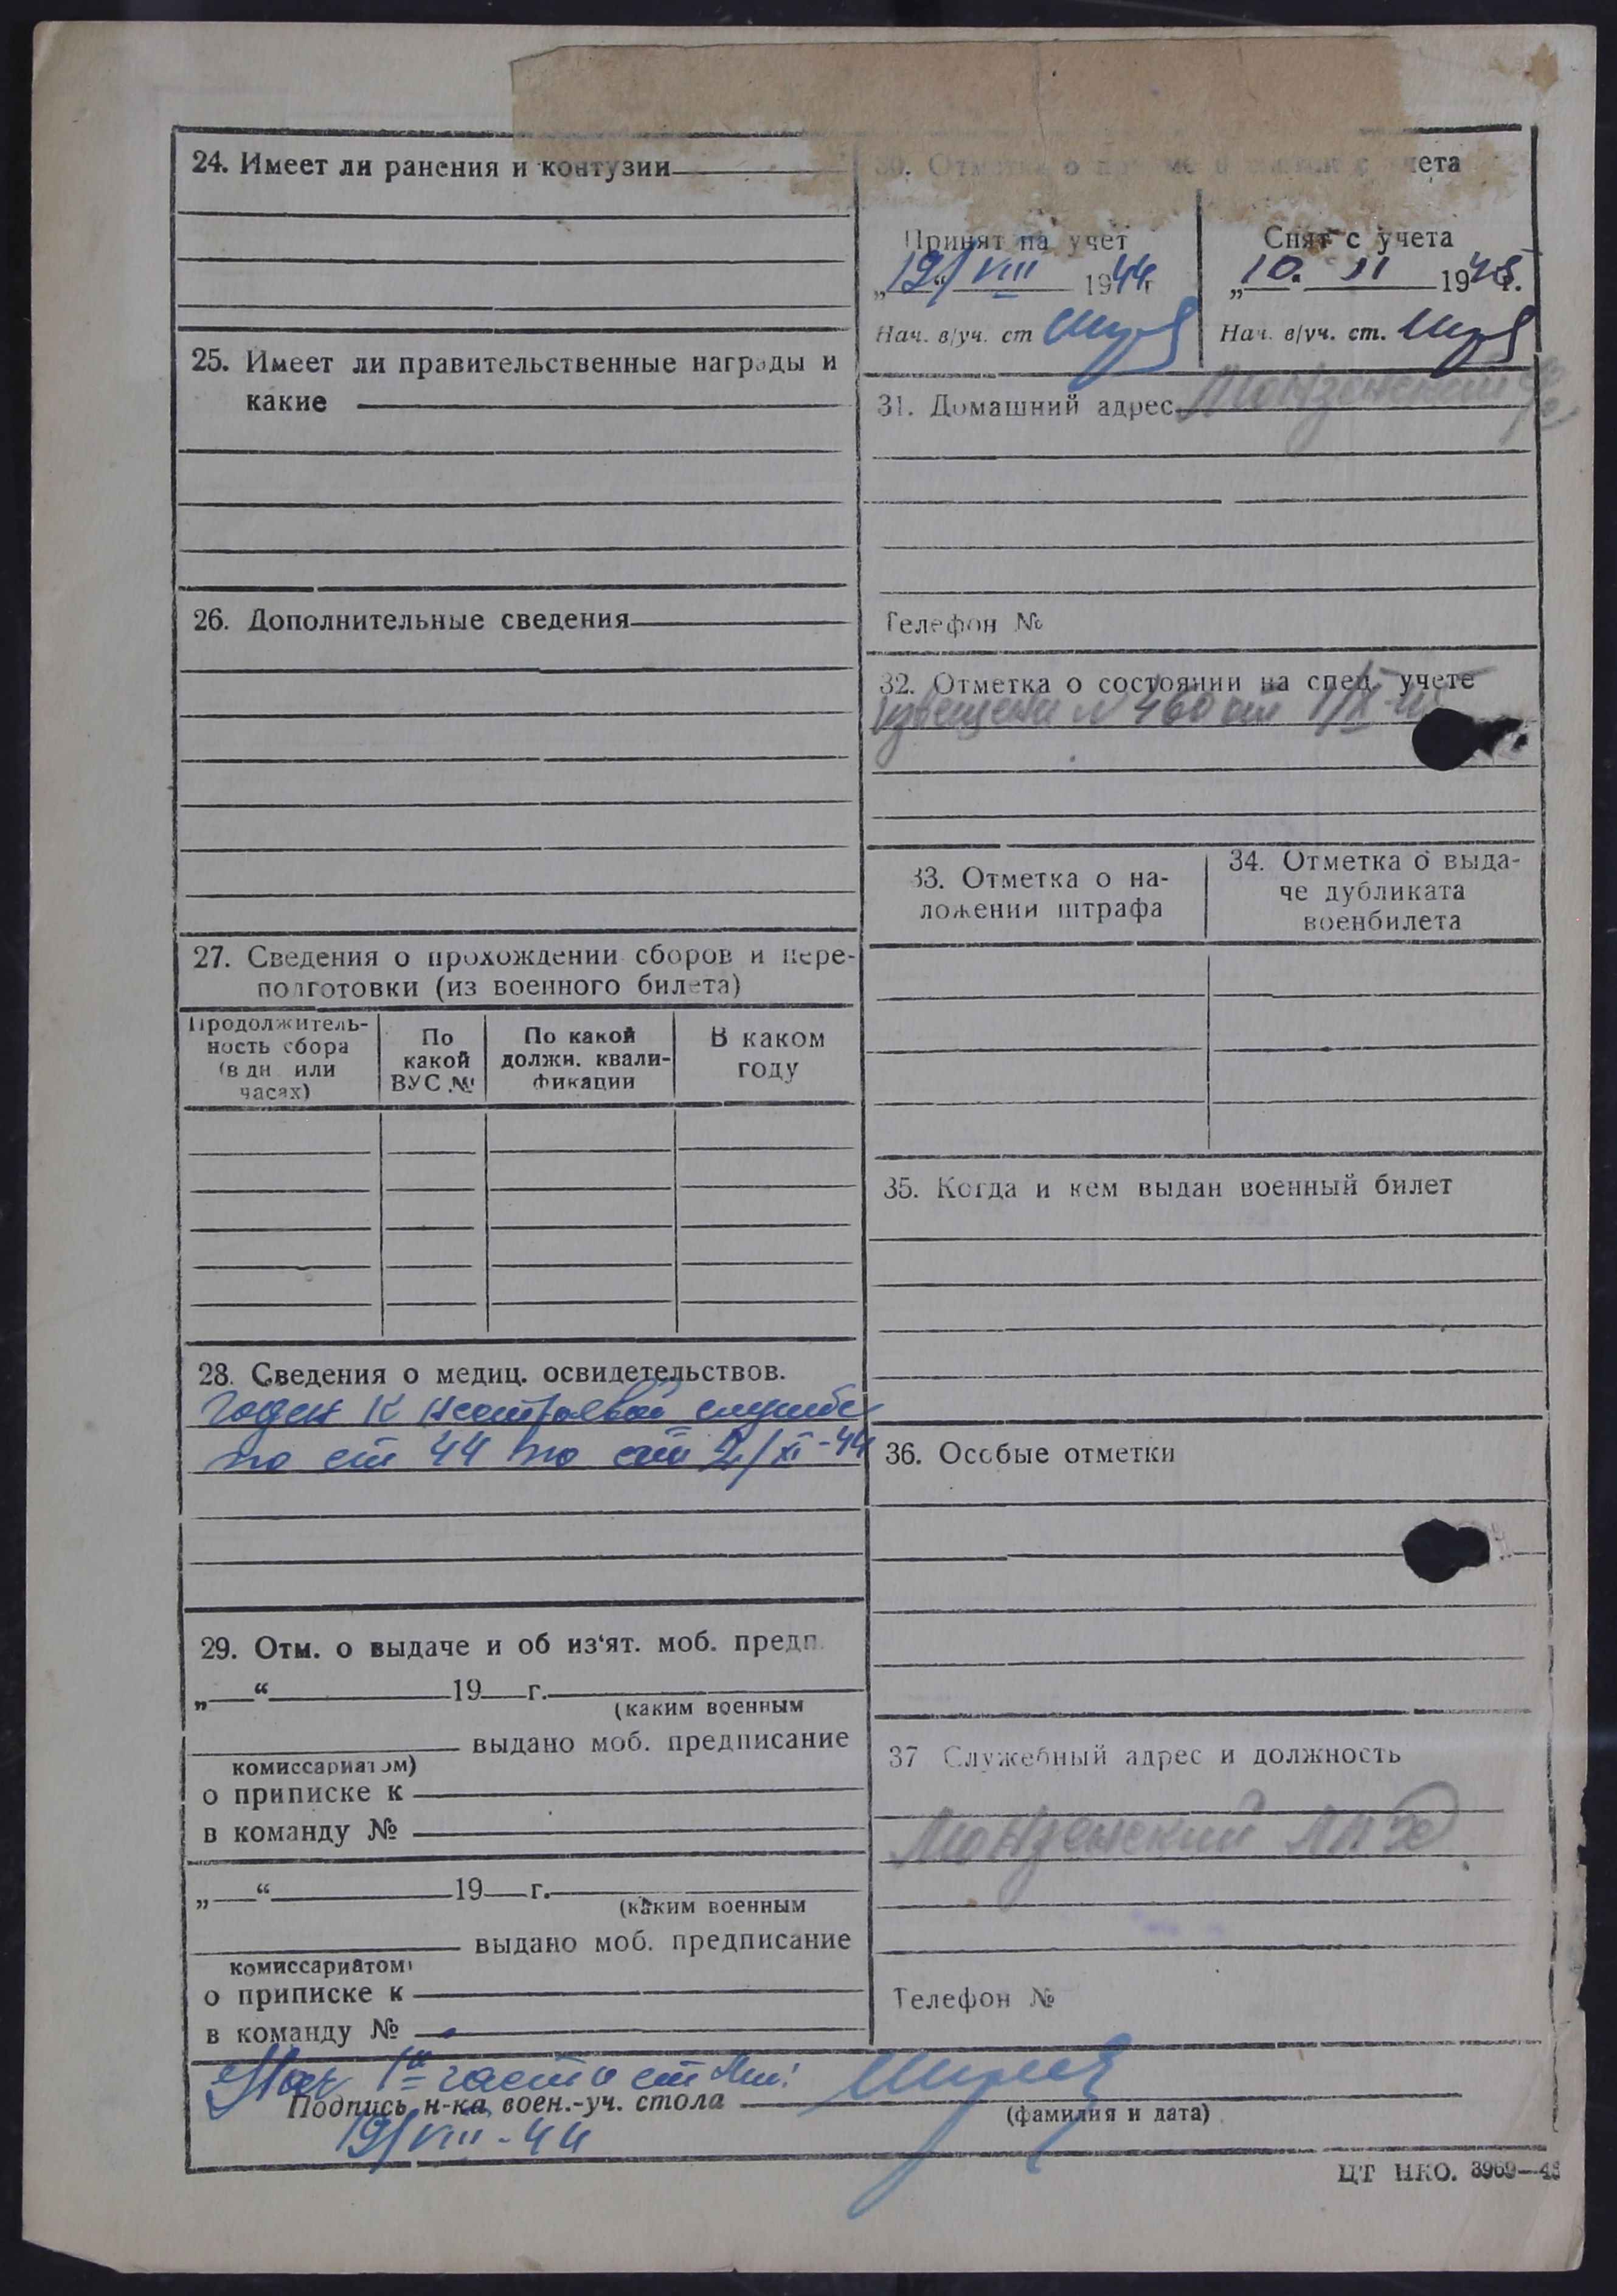 24. Имеет ли ранения и контузии
25. Имеет ли правительственные награды и
какие
26. Дополнительные сведения
27. Сведения о прохождении сборов и пере-
подготовки (из военного билета)
Продолжитель-
ность сбора
(в дн. или
часах)
По
какой
ВУС №
По какой
должн. квали-
фикации
В каком
году
28. Сведения о медиц. освидетельствов.
годен к нестроевой службе
по ст 44 по 2/XI-44
29. Отм. о выдаче и об из‘ят. моб. предп.
„ “ 19 г.
(каким военным
выдано моб. предписание
комиссариатом)
о приписке к
в команду №
„ “ 19 г.
(каким военным
выдано моб. предписание
комиссариатом)
о приписке к
в команду №
30. Отметка о с учета
Принят на учет
„19“ VIII 1944г
Нач. в/уч. ст
Снят с учета
„10“ 1945г.
Нач. в/уч. ст.
31. Домашний адрес Монзенский
Телефон №
32. Отметка о состоянии на спец. учете
Извещение № 460 от
33. Отметка о на-
ложении штрафа
34. Отметка о выда-
че дубликата
военбилета
35. Когда и кем выдан военный билет
36. Особые отметки
37 Служебный адрес и должность
Монзенский ЛПХ
Телефон №
Нач 1й части
Подпись н-ка воен.-уч. стола
(фамилия и дата)
19/VIII-44
ЦТ НКО. 3969—43